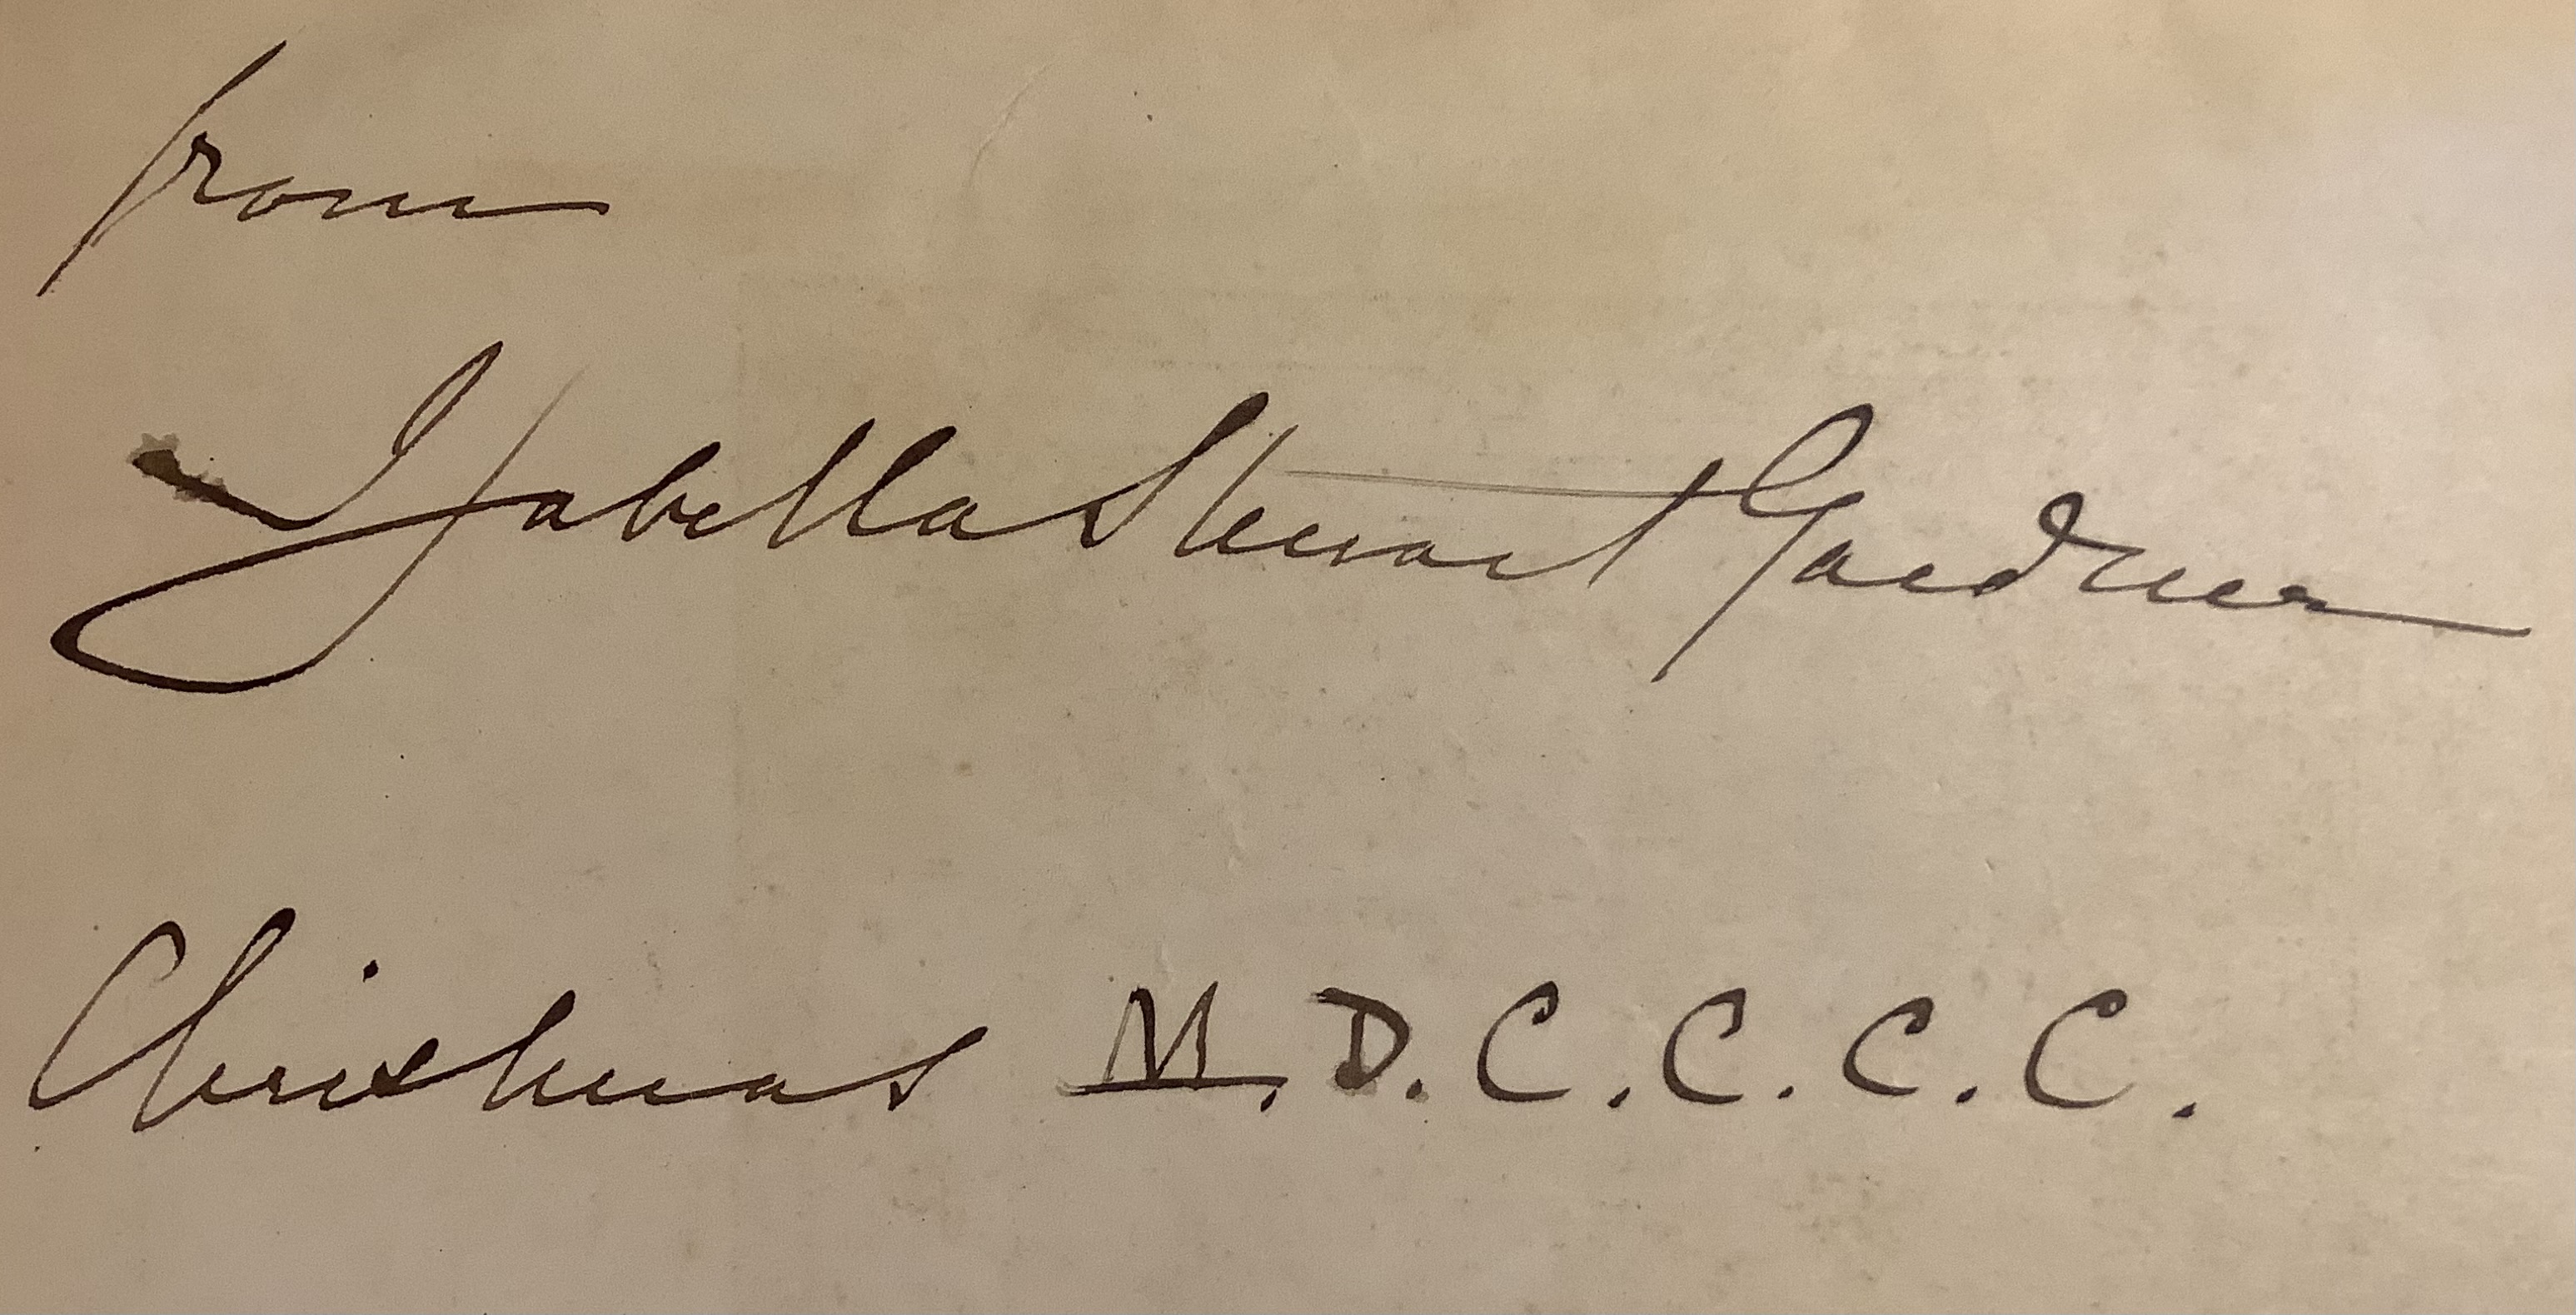 from
Isabella Stewart Gardner
Christmas M.D.C.C.C.C.